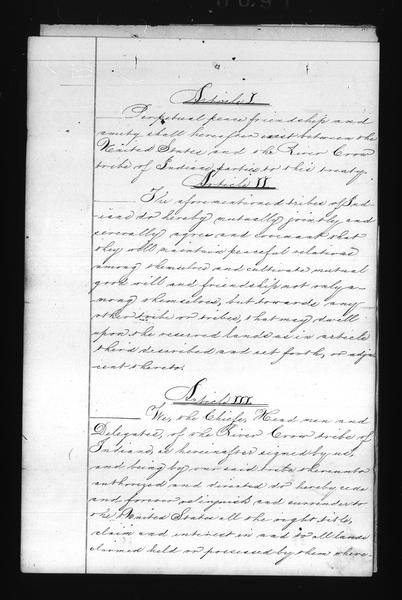 Article I
Perpetual peace friendship and
amity shall hereafter exist between the
United States and the River Crow
tribe of Indians parties to this treaty.
Article II
The aforementioned tribes of Ind-
ians do hereby mutually, jointly, and
severally agree and covenant that
they will maintain peaceful relations
among themselves and cultivate mutual
good will and friendship not only a-
mong themselves, but towards any
other tribe or tribes, that may dwell
upon the reserved lands as in article
third described and set forth, or adja-
cent thereto.
Article III
We, the Chiefs, Head men and
Delegates, of the River Crow tribe of
Indians, as hereinafter signed by us,
and being by our said tribe thereunto
authorized and directed do hereby cede
and forever relinquish and surrender to
the United States all the right, title,
claim and interest in and to all lands
claimed held or possessed by them where-